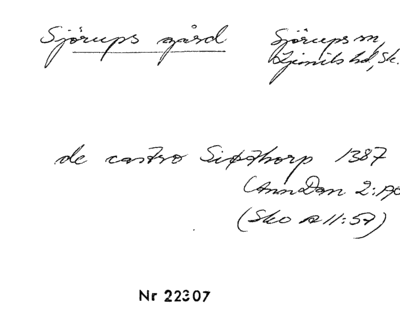 Sjörups gård Sjörups sn,
Ljunits hd, Sk.
de castro Siøthorp 1387
(AnnDan 2:190
(Sko A 11:57)
Nr 22307